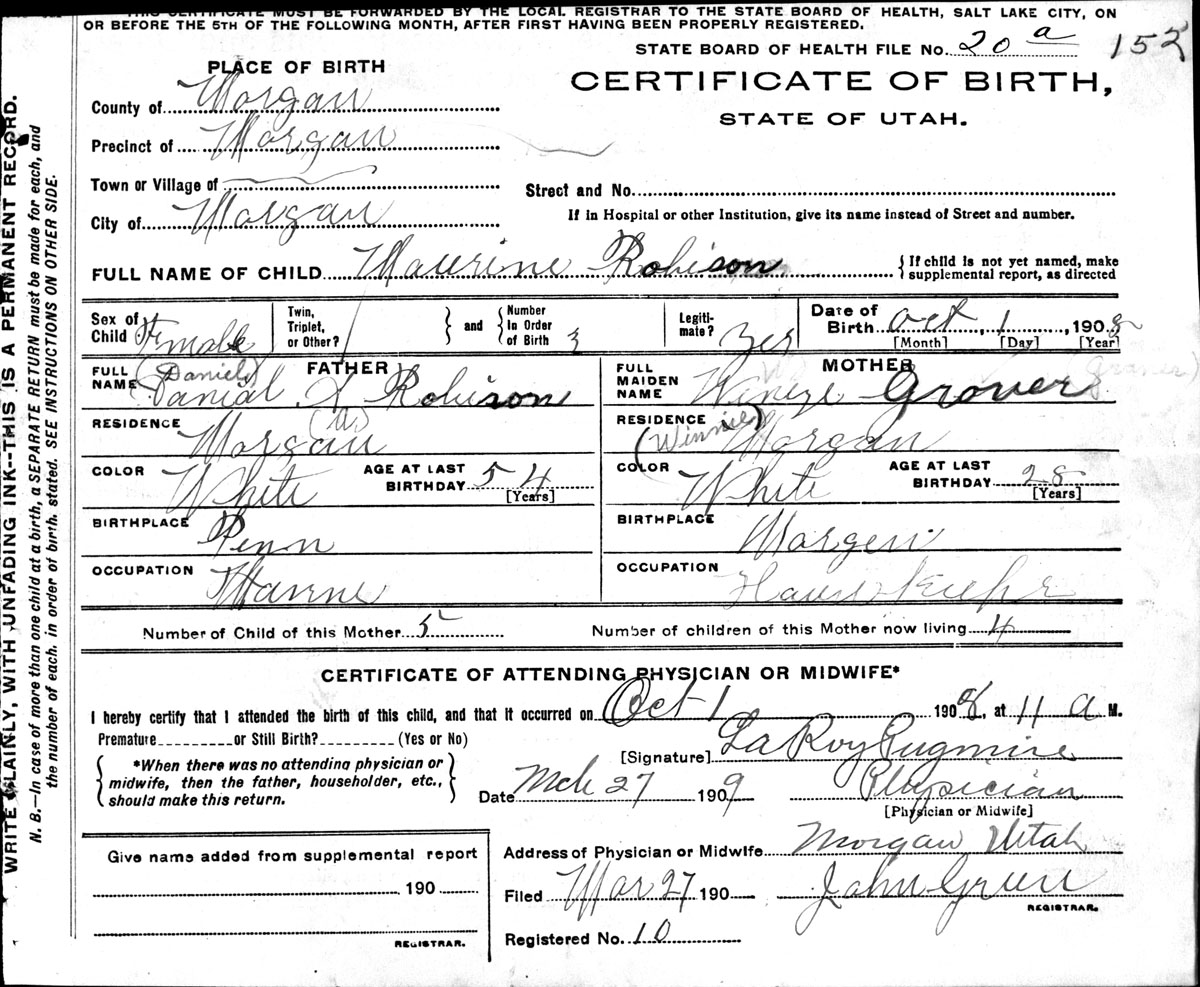 THIS CERTIFICATE MUST BE FORWARDED BY THE LOCAL REGISTRAR TO THE STATE BOARD OF HEALTH, SALT LAKE CITY, ON
OR BEFORE THE 5TH OF THE FOLLOWING MONTH, AFTER FIRST HAVING BEEN PROPERLY REGISTERED.
STATE BOARD OF HEALTH FILE No. 20 a 152
PLACE OF BIRTH
CERTIFICATE OF BIRTH,
STATE OF UTAH.
County of Morgan
Precinct of Morgan
Town or Village of
Street and No.
City of Morgan
If in Hospital or other Institution, give its name instead of Street and number.
FULL NAME OF CHILD Maurine Robison
{ If child is not yet named, make supplemental report, as directed
Sex of Child Female
Twin, Triplet, or Other? } and { Number In Order of Birth 3
Legitimate? Yes
Date of Birth Oct, 1, 1908
[Month] [Day] [Year]
FATHER
FULL NAME (Daniel) Danial A Robison
(a)
RESIDENCE Morgan
COLOR White AGE AT LAST BIRTHDAY 54
[Years]
BIRTHPLACE Penn
OCCUPATION
MOTHER
FULL MAIDEN NAME Grover
RESIDENCE (Winnie) Morgan
COLOR White AGE AT LAST BIRTHDAY 28
[Years]
BIRTHPLACE Morgen
OCCUPATION
Number of Child of this Mother 5 Number of children of this Mother now living 4
CERTIFICATE OF ATTENDING PHYSICIAN OR MIDWIFE*
I hereby certify that I attended the birth of this child, and that it occurred on Oct 1 1908, at 11 a M.
Premature or Still Birth? (Yes or No)
[Signature] LaRoy Pugmire
{ *When there was no attending physician or midwife, then the father, householder, etc., should make this return. }
Date Mch 27 1909 Physician
[Physician or Midwife]
Give name added from supplemental report
190
REGISTRAR.
Address of Physician or Midwife Morgan Utah
Filed Mar 27 190 John Green
REGISTRAR.
Registered No. 10
WRITE PLAINLY, WITH UNFADING INK--THIS IS A PERMANENT RECORD.
N. B.—In case of more than one child at a birth, a SEPARATE RETURN must be made for each, and
the number of each, in order of birth, stated. SEE INSTRUCTIONS ON OTHER SIDE.